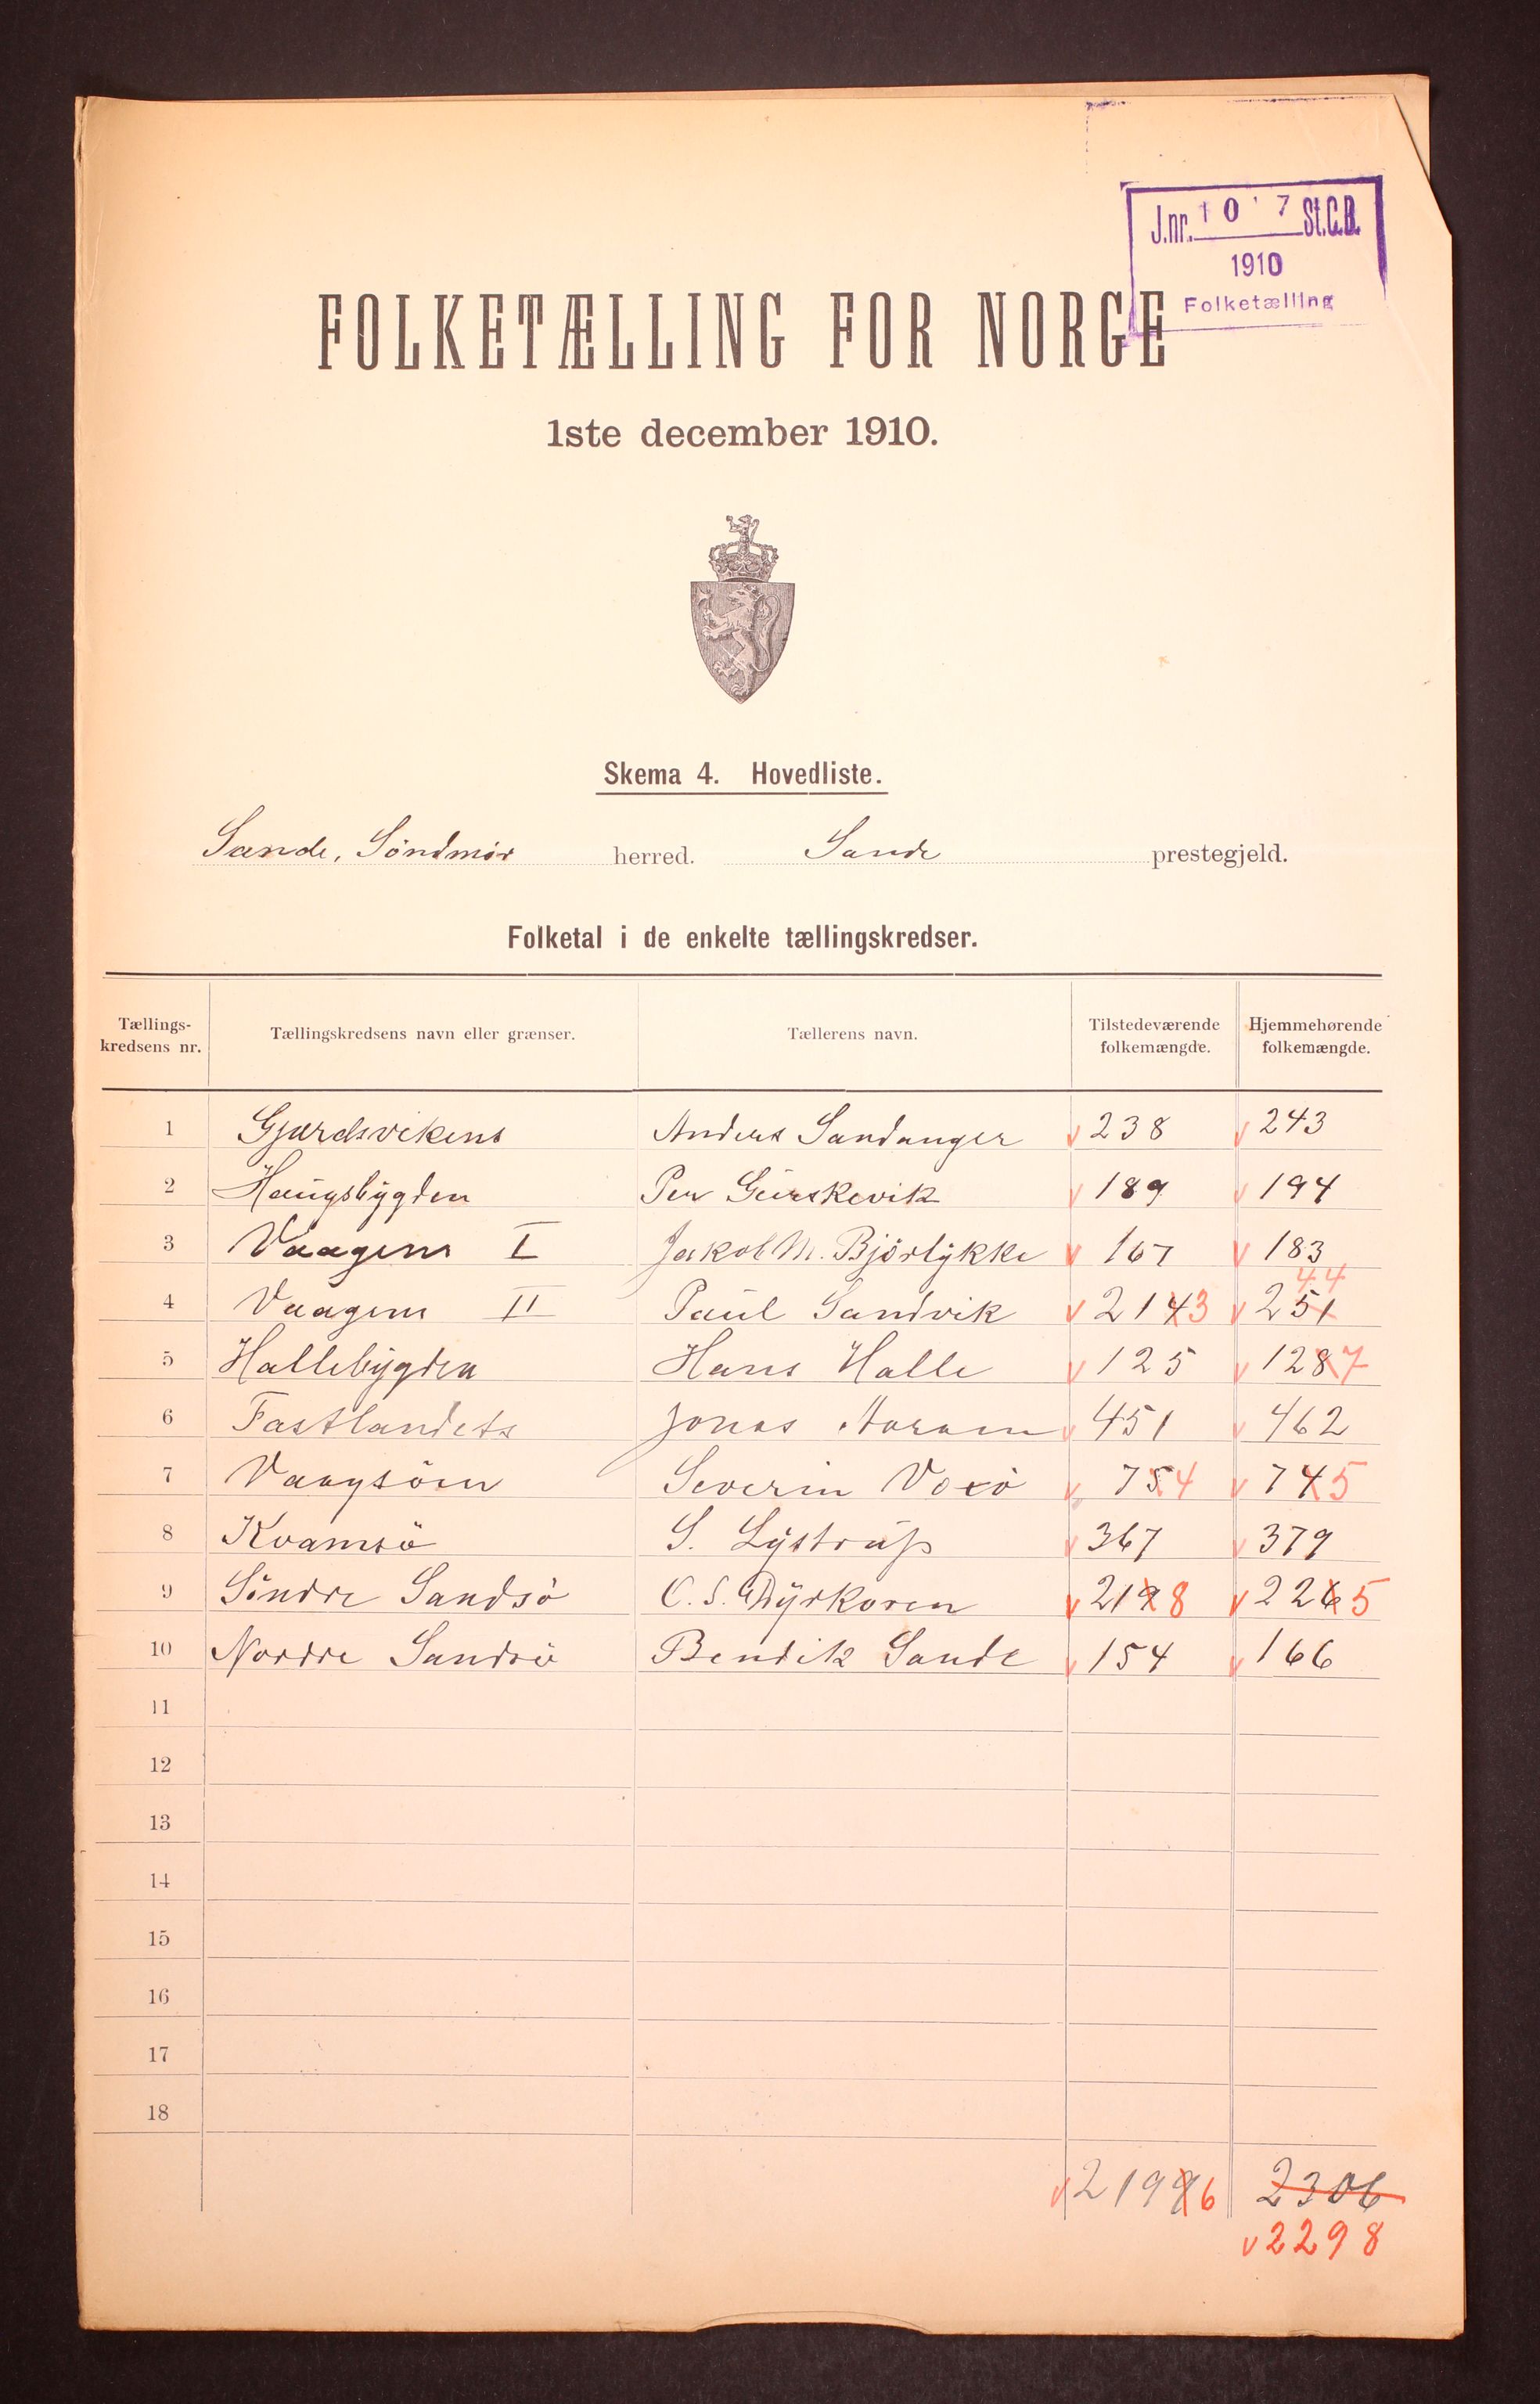 J.nr. 10 7 St.C.B.
1910
Folketælling
FOLKETÆLLING FOR NORGE
1ste december 1910.
Skema 4. Hovedliste.
Sande, Söndmör herred. Sande prestegjeld.
Folketal i de enkelte tællingskredser.
Tællings-kredsens nr. Tællingskredsens navn eller grænser. Tællerens navn. Tilstedeværende folkemængde. Hjemmehørende folkemængde.
1 Gjærdsvikens Anders Sandanger v 238 v 243
2 Haugsbygden Per Gurskevik v 189 v 194
3 Vaagens I Jakob M. Bjørlykke v 167 v 183
44
4 Vaagens II Paul Sandvik v 2143 v 251
5 Hallebygden Hans Halle v 125 v 1287
6 Fastlandets Jonas Aaram v 451 v 462
7 Vaagsöen Severin Voxö v 754 v 745
8 Kvamsö S. Lystrup v 367 v 379
9 Söndre Sandsö C. S. Dyrkoren v 2198 v 2265
10 Nordre Sandsö Bendik Sande v 154 v 166
11
12
13
14
15
16
17
18
v 21996 2306
v 2298